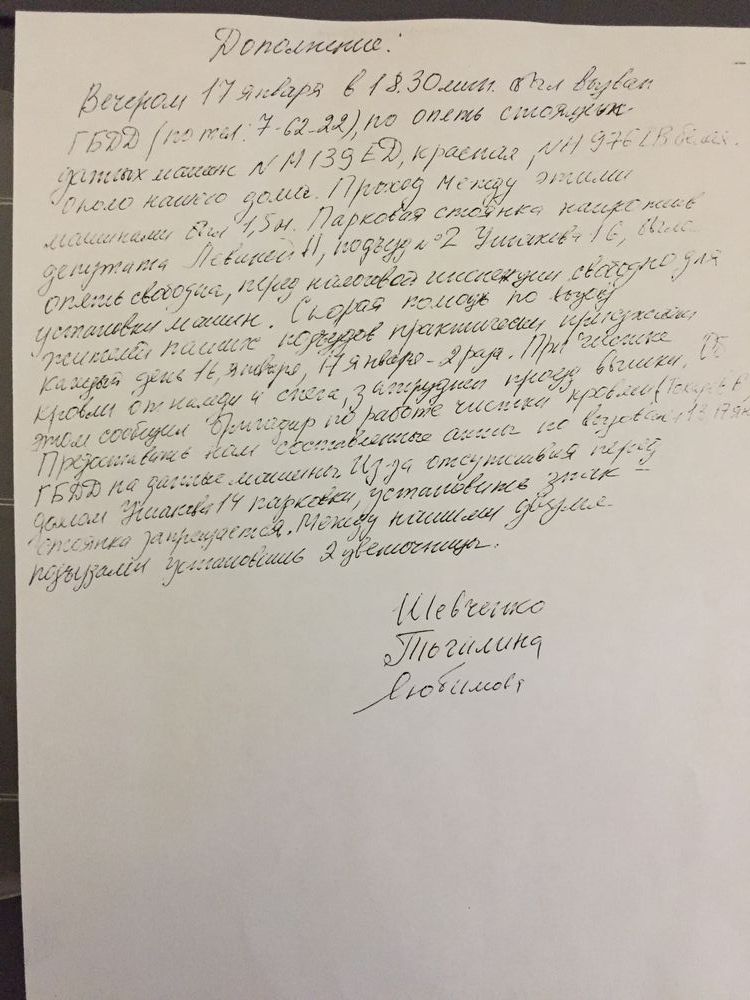 Дополнение:
Вечером 17 января в 18.30 мин. был вызван
ГБДД (по тел: 7-62-22), по опять стоящих
данных машин N М 139 ЕD, красная, N Н 976 LB белая.
около нашего дома. Проход между этими
машинами был 1,5 м. Парковая стоянка напротив
депутата, подъезд №2 Ушакова 16, была
опять свободна, перед налоговой инспекции свободно для
установки машин. Скорая помощь по вызову
жителей наших подъездов практически приезжает
каждый день 16, января, 17 января - 2 раза. При чистке
кровли от наледи и снега, затруднён проезд вышки. Об
этом сообщил бригадир по работе чистки кровли
Предоставить нам составленные акты по вызовам 13, 17 янв
ГБДД на данные машины. Из-за отсутствия перед
домом Ушакова 14 парковки, установить знак -
стоянка запрещается. Между нашими двумя
подъездами установить 2 цветочницы.
Шевченко
Точилина
Любимова